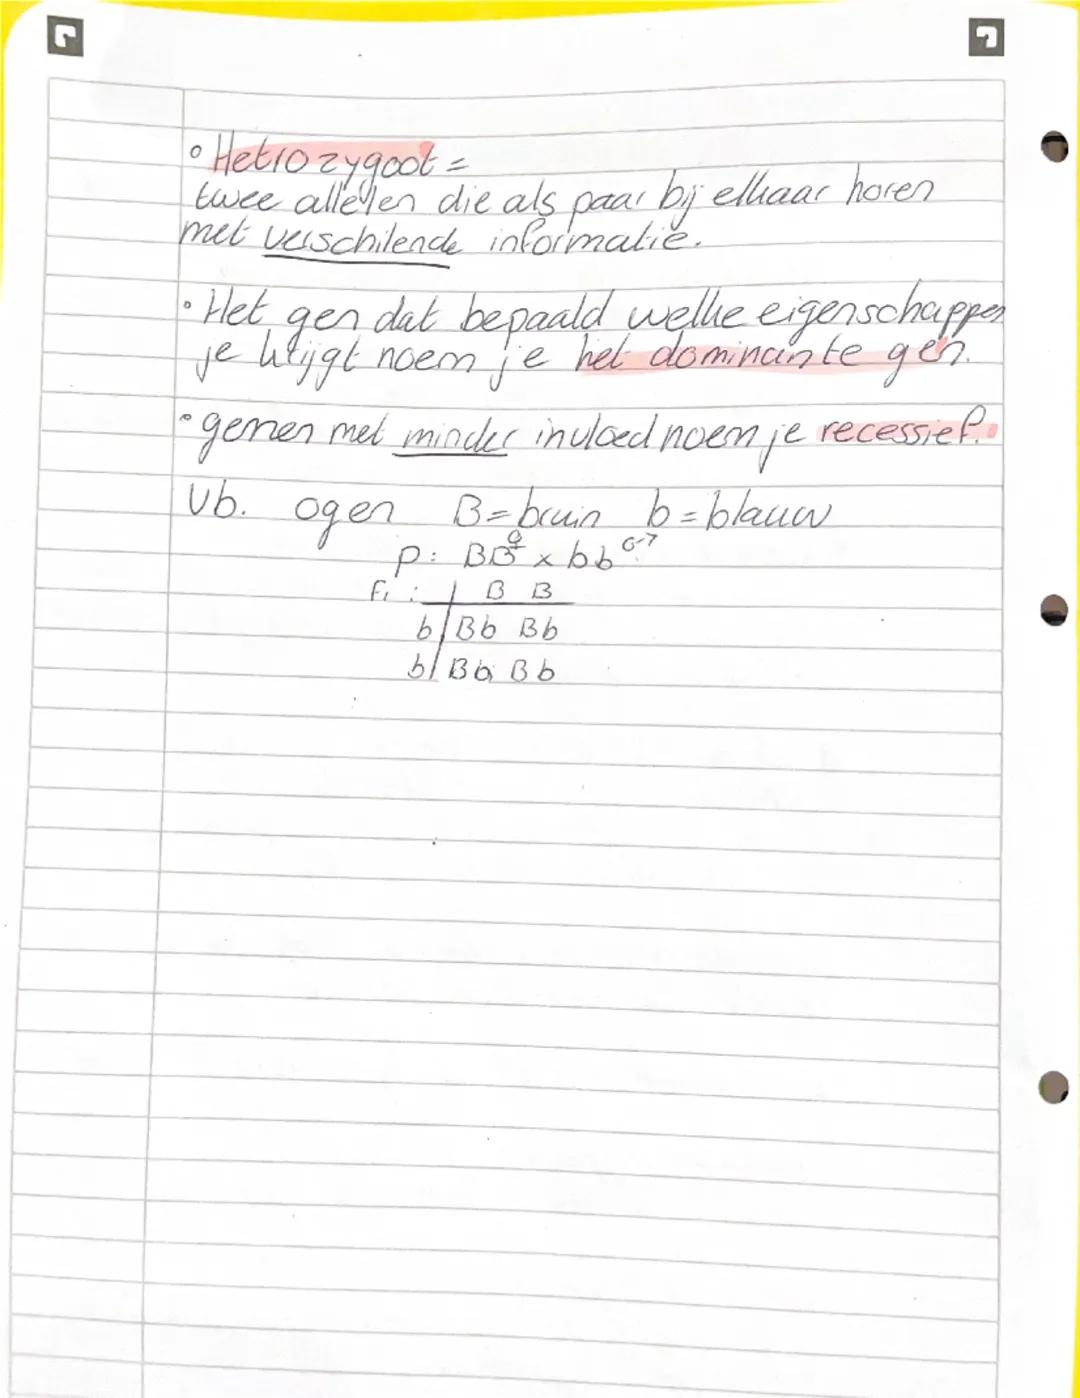 ° Hetrozygoot =
twee allelen die als paar bij elkaar horen
met verschilende informatie.
° Het gen dat bepaald welke eigenschappen
je krijgt noem je het dominante gen.
° genen met minder invloed noem je recessief.
Vb. ogen B=bruin b=blauw
P: BB♀ x bb♂
F₁: | B B
b | Bb Bb
b | Bb Bb